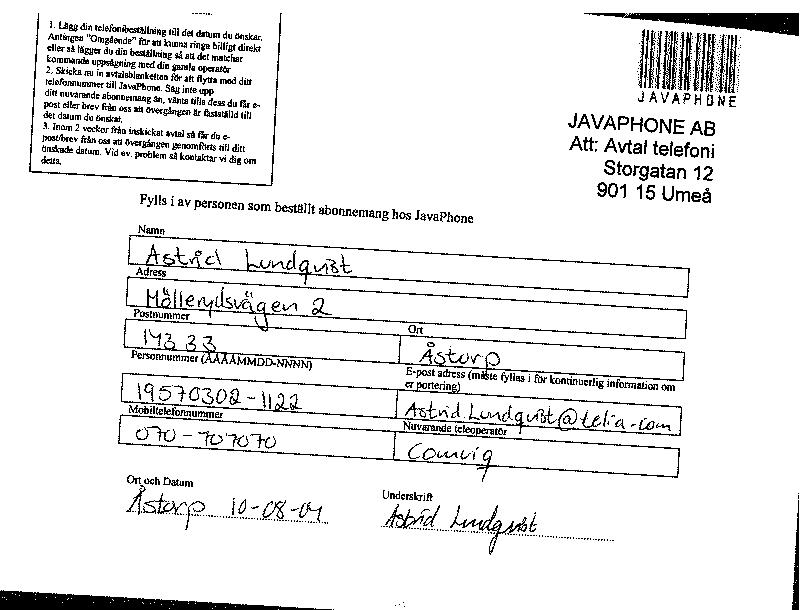 1. Lägg din telefonibeställning till det datum du önskar.
Antingen "Omgående" för att kunna ringa billigt direkt
eller så lägger du din beställning så att det matchar
kommande uppsägning med din gamla operatör
2. Skicka nu in avtalsblanketten för att flytta med ditt
telefonnummer till JavaPhone. Säg inte upp
ditt nuvarande abonnemang än, vänta tills dess du får e-
post eller brev från oss att övergången är fastställd till
det datum du önskat.
3. Inom 2 veckor från inskickat avtal så får du e-
post/brev från oss att övergången genomförts till ditt
önskade datum. Vid ev. problem så kontaktar vi dig om
detta.
JAVAPHONE
JAVAPHONE AB
Att: Avtal telefoni
Storgatan 12
901 15 Umeå
Fylls i av personen som beställt abonnemang hos JavaPhone
Namn
Astrid Lundqvist
Adress
Möllerydsvägen 2
Postnummer
Ort
143 33
Åstorp
Personnummer (ÅÅÅÅMMDD-NNNN)
E-post adress (måste fylles i för kontinuerlig information om
er portering)
19570302-1122
Astrid.Lundqvist@telia.com
Mobiltelefonnummer
Nuvarande teleoperatör
070-707070
Comviq
Ort och Datum
Underskrift
Åstorp 10-08-04
Astrid Lundqvist